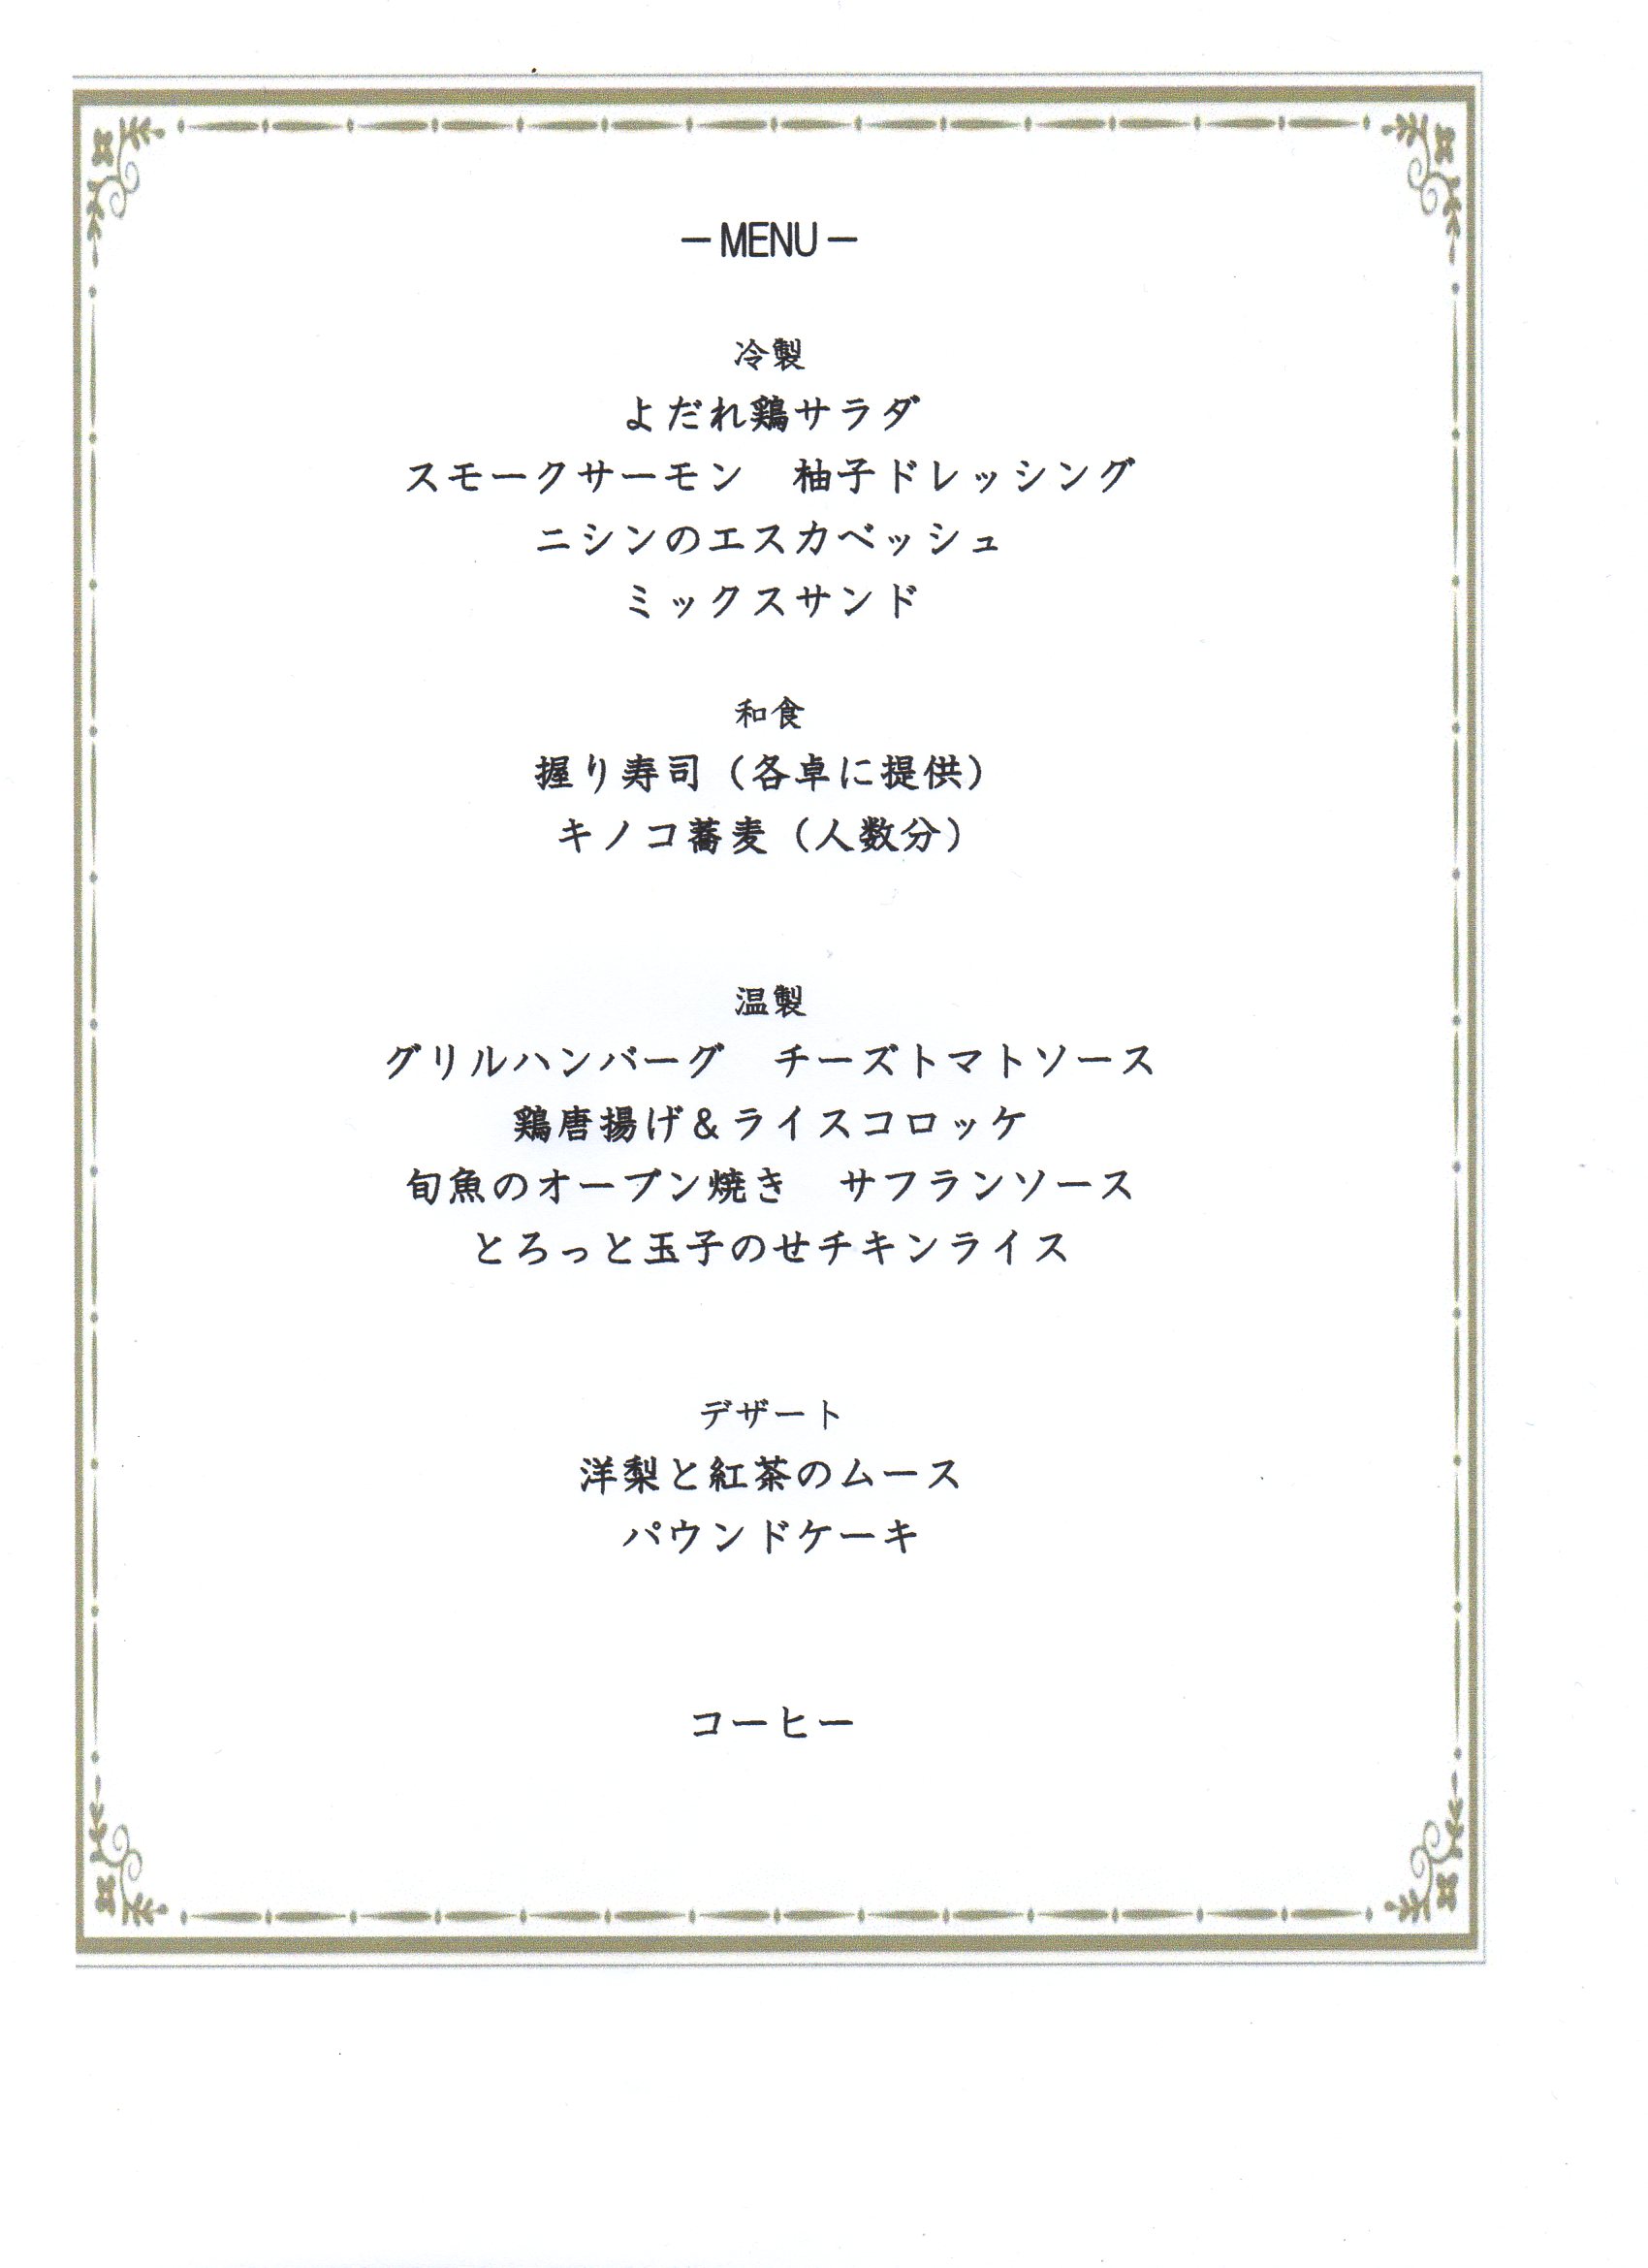 －MENU－
冷製
よだれ鶏サラダ
スモークサーモン　柚子ドレッシング
ニシンのエスカベッシュ
ミックスサンド
和食
握り寿司（各卓に提供）
キノコ蕎麦（人数分）
温製
グリルハンバーグ　チーズトマトソース
鶏唐揚げ＆ライスコロッケ
旬魚のオーブン焼き　サフランソース
とろっと玉子のせチキンライス
デザート
洋梨と紅茶のムース
パウンドケーキ
コーヒー